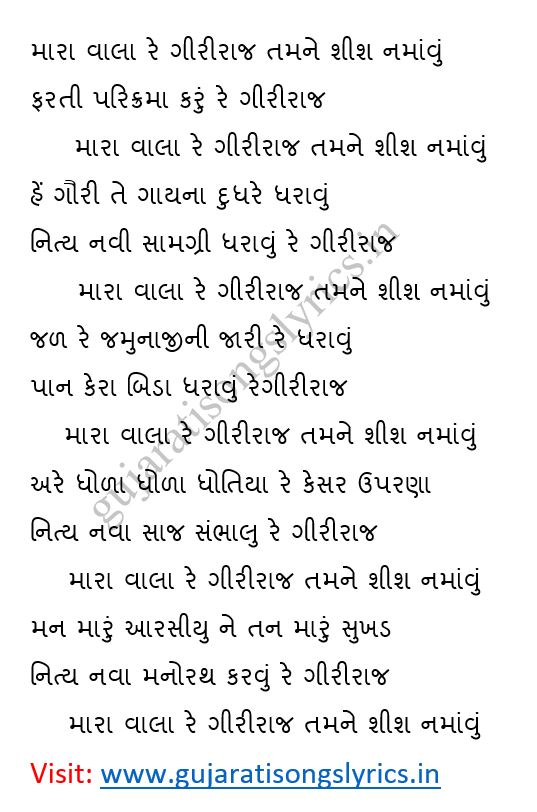 મારા વાલા રે ગીરીરાજ તમને શીશ નમાંવું
ફરતી પરિક્રમા કરું રે ગીરીરાજ
મારા વાલા રે ગીરીરાજ તમને શીશ નમાંવું
હેં ગૌરી તે ગાયના દુધરે ધરાવું
નિત્ય નવી સામગ્રી ધરાવું રે ગીરીરાજ
મારા વાલા રે ગીરીરાજ તમને શીશ નમાંવું
જળ રે જમુનાજીની જારી રે ધરાવું
પાન કેરા બિડા ધરાવું રેગીરીરાજ
મારા વાલા રે ગીરીરાજ તમને શીશ નમાંવું
અરે ધોળા ધોળા ધોતિયા રે કેસર ઉપરણા
નિત્ય નવા સાજ સંભાલુ રે ગીરીરાજ
મારા વાલા રે ગીરીરાજ તમને શીશ નમાંવું
મન મારું આરસીયુ ને તન મારું સુખડ
નિત્ય નવા મનોરથ કરવું રે ગીરીરાજ
મારા વાલા રે ગીરીરાજ તમને શીશ નમાંવું
Visit: www.gujaratisongslyrics.in
gujaratisongslyrics.in